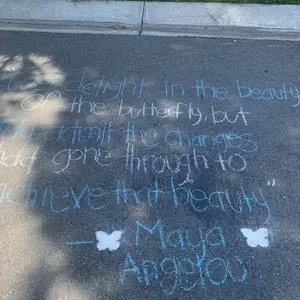 delight in the beauty
of the butterfly, but
admit the changes
had gone through to
achieve that beauty"
— Maya
Angelou